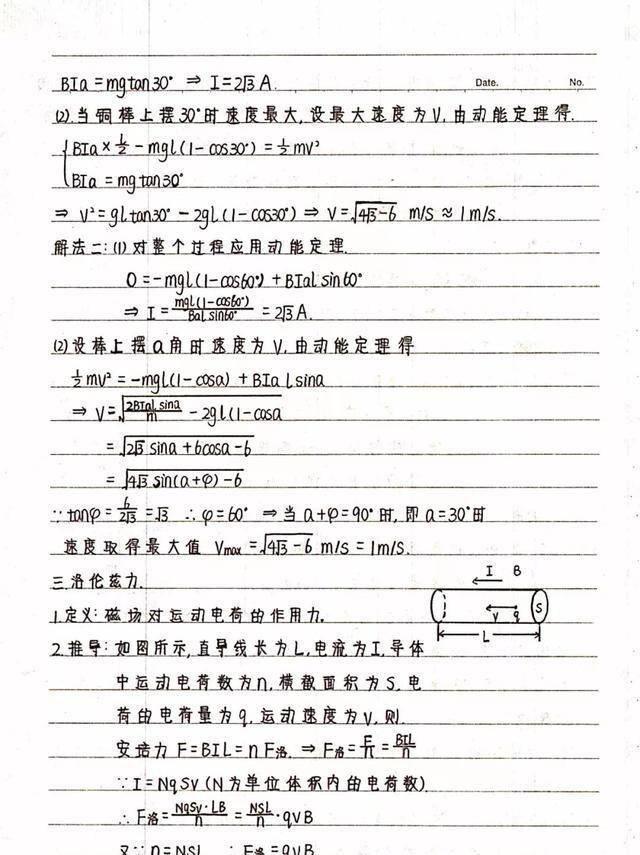 BIa = mgtan30° ⇒ I = 2√3 A.
Date. No.
(2). 当铜棒上摆30°时速度最大, 设最大速度为V, 由动能定理得.
{BIa × l/2 - mgl(1-cos30°) = 1/2 mv²
BIa = mgtan30°
⇒ V² = gltan30° - 2gl(1-cos30°) ⇒ V = √(4√3-6) m/s ≈ 1m/s.
解法二: (1) 对整个过程应用动能定理.
0 = -mgl(1-cos60°) + BIalsin60°
⇒ I = mgl(1-cos60°)/Balsin60° = 2√3 A.
(2) 设棒上摆a角时速度为V, 由动能定理得
1/2 mv² = -mgl(1-cosa) + BIalsina
⇒ V = √(2BIalsina/m - 2gl(1-cosa
= √(2√3 sina + 6cosa - 6)
= √(4√3 sin(a+φ) - 6)
∵ tanφ = 6/2√3 = √3 ∴ φ = 60° ⇒ 当 a+φ = 90°时, 即 a = 30°时
速度取得最大值 Vmax = √(4√3-6) m/s = 1m/s.
三. 洛伦兹力.
I B
1. 定义: 磁场对运动电荷的作用力.
v q S
L
2. 推导: 如图所示, 直导线长为L, 电流为I, 导体
中运动电荷数为n, 横截面积为S, 电
荷的电荷量为q, 运动速度为v, 则
安培力 F = BIL = nF洛. ⇒ F洛 = F/n = BIL/n
∵ I = NqSv (N为单位体积内的电荷数)
∴ F洛 = NqSv·LB/n = NSL/n · qvB
又∵ n = NSL ∴ F洛 = qvB